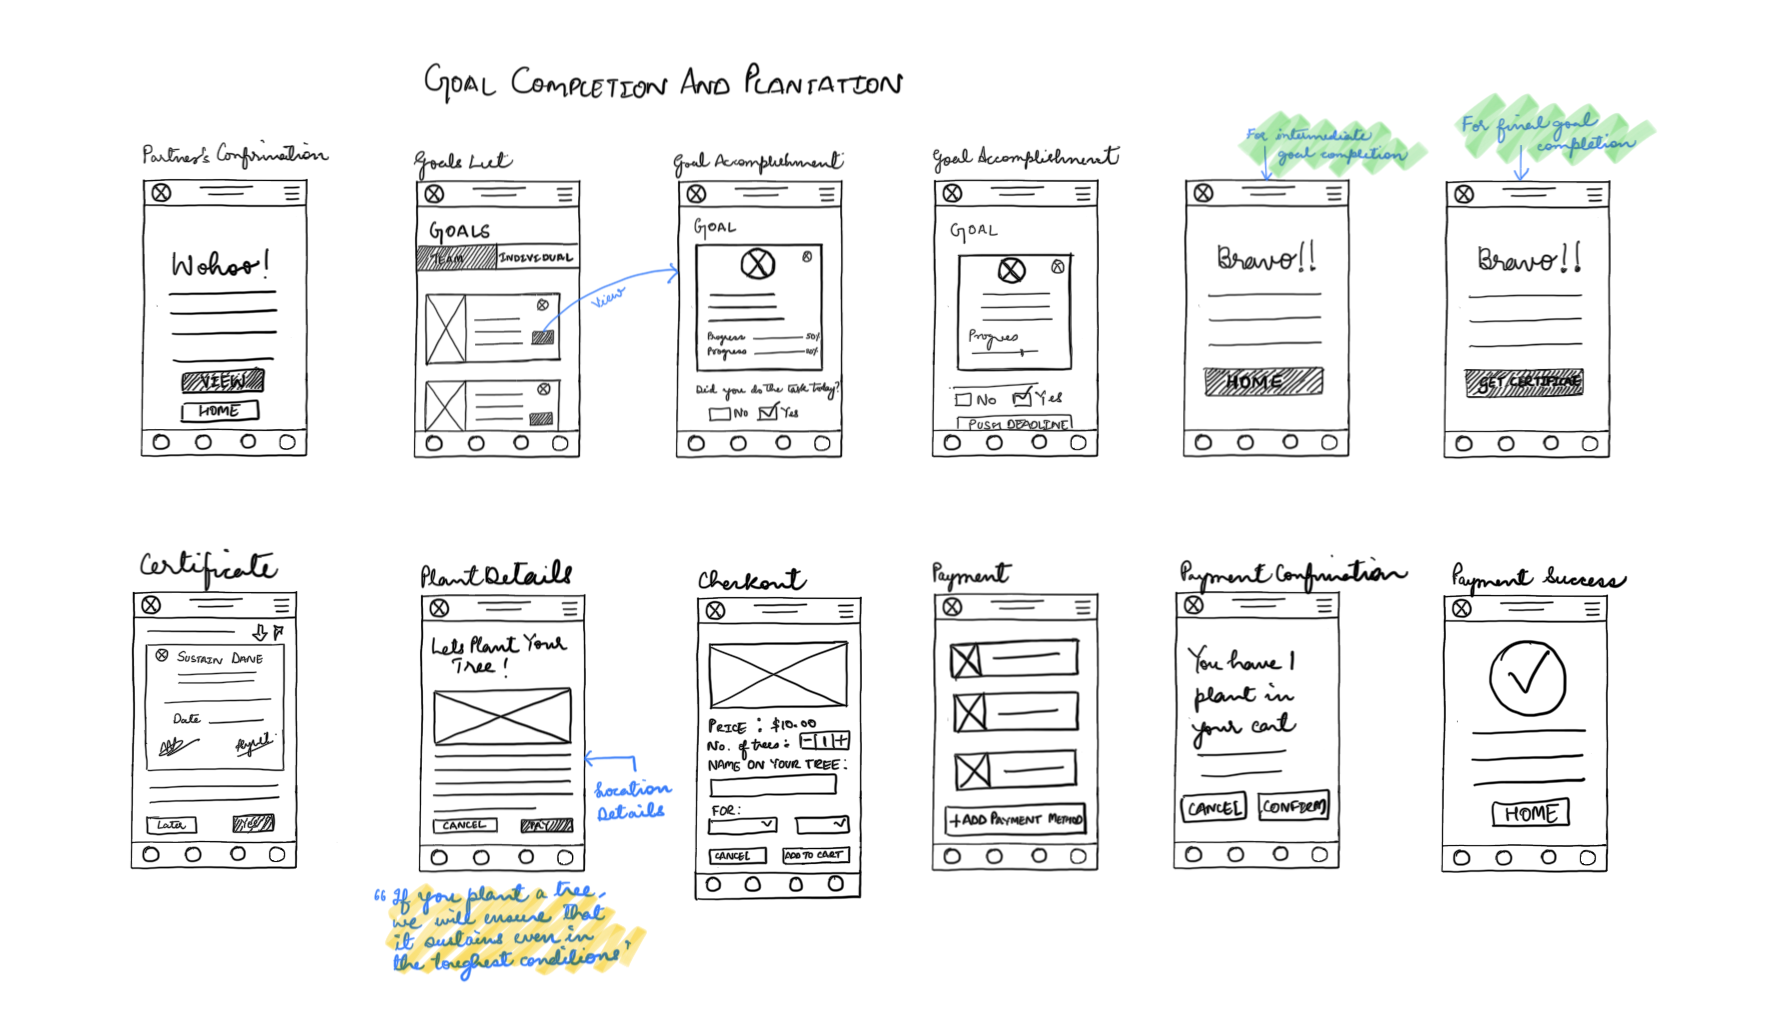 GOAL COMPLETION AND PLANTATION
Partner's Confirmation
Wohoo!
VIEW
HOME
Goals List
GOALS
TEAM
INDIVIDUAL
View
Goal Accomplishment
GOAL
Progress 50%
Progress
Did you do the task today?
No Yes
Goal Accomplishment
GOAL
Progres
No Yes
PUSH DEADLINE
For intermediate
goal completion
Bravo!!
HOME
For final goal
completion
Bravo!!
GET CERTIFICATE
Certificate
SUSTAIN DANE
Date
Later
YES
Plant Details
Lets Plant Your
Tree!
CANCEL
PAY
Location
Details
“If you plant a tree,
we will ensure that
it sustains even in
the toughest conditions”
Checkout
PRICE : $10.00
No. of trees : - 1 +
NAME ON YOUR TREE :
FOR:
CANCEL
ADD TO CART
Payment
+ADD PAYMENT METHOD
Payment Confirmation
You have 1
plant in
your cart
CANCEL
CONFIRM
Payment Success
HOME